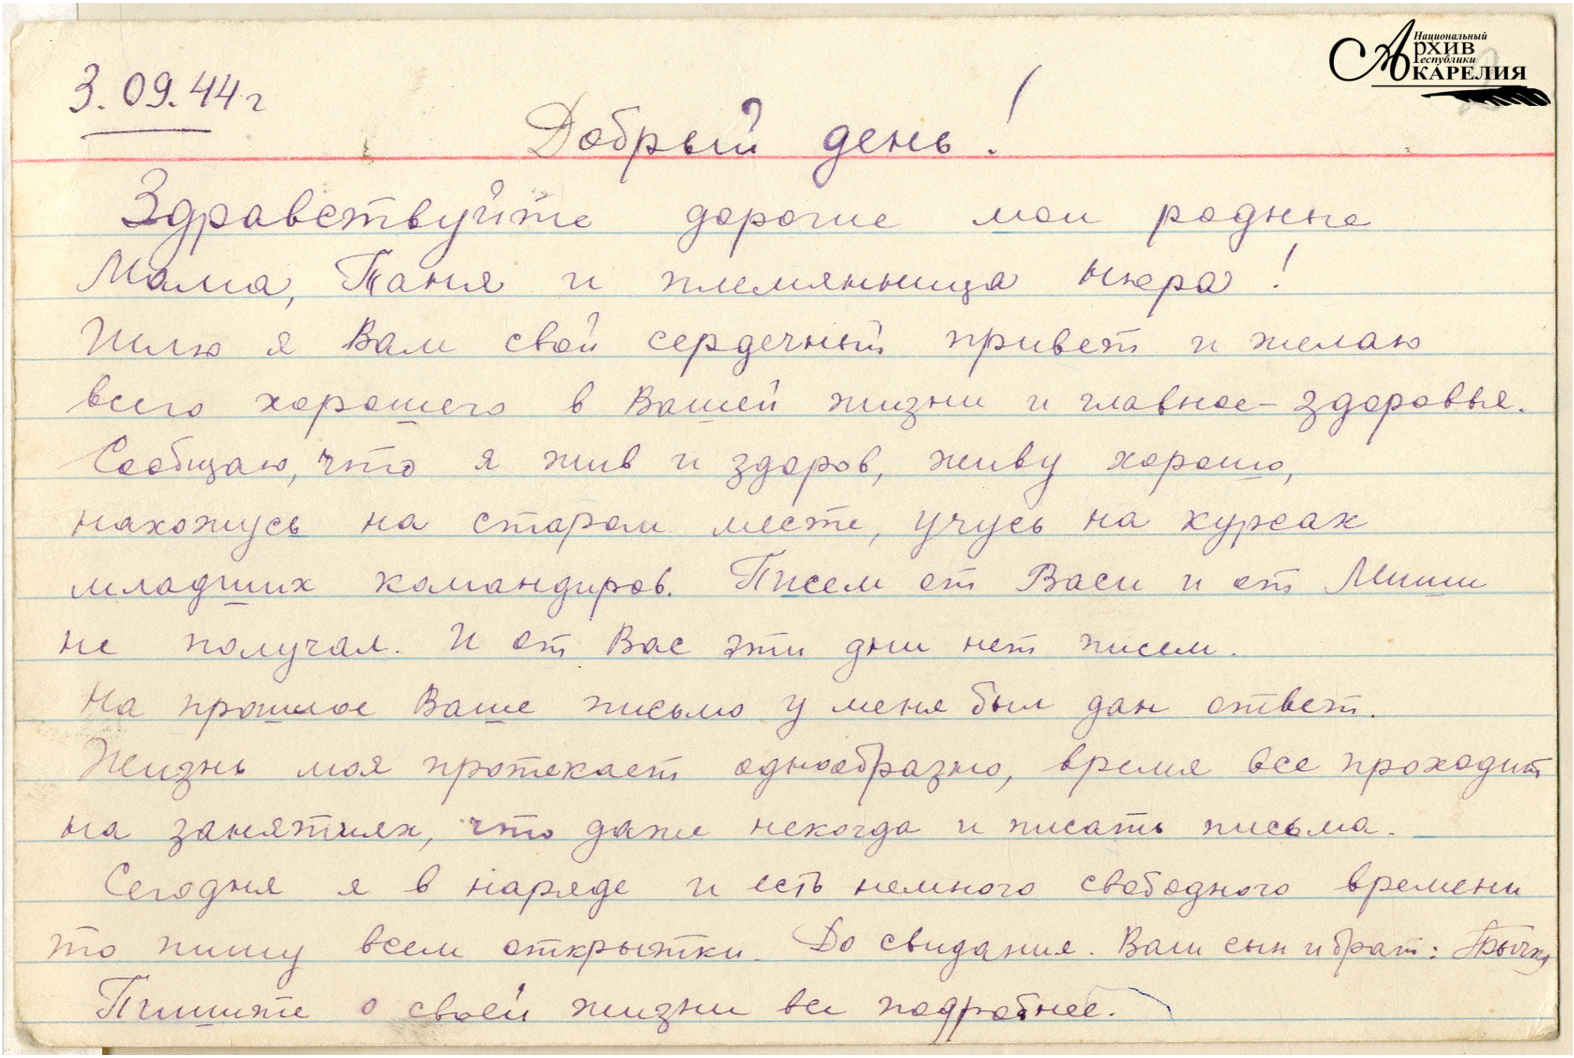 Национальный
АРХИВ
Республики
КАРЕЛИЯ
3.09.44 г
Добрый день!
Здравствуйте дорогие мои родные
Мама, Таня и племянница Нюра!
Шлю я Вам свой сердечный привет и желаю
всего хорошего в Вашей жизни и главное - здоровья.
Сообщаю, что я жив и здоров, живу хорошо,
нахожусь на старом месте, учусь на курсах
младших командиров. Писем от Васи и от Миши
не получал. И от Вас эти дни нет писем.
На прошлое Ваше письмо у меня был дан ответ.
Жизнь моя протекает однообразно, время все проходит
на занятиях, что даже некогда и писать письма.
Сегодня я в наряде и есть немного свободного времени
то пишу всем открытки. До свидания. Ваш сын и брат:
Пишите о своей жизни все подробнее.